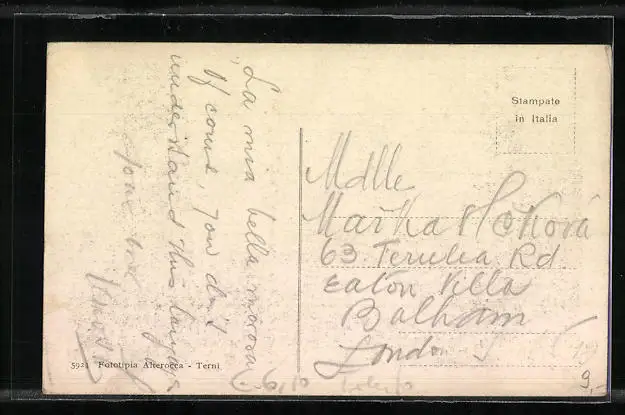 La mia bella morova
Of course, you don't
understand this
Your
Stampato
in Italia
Mdlle
Marka
63 Terulea Rd
Eaton Villa
Balham
London S
5921 Fototipia Alterocca - Terni
9,-